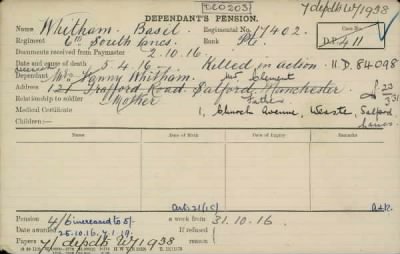 DE0203
7/depdts W/1938
DEPENDANT'S PENSION.
Name Whitham, Basil Regimental No. 17402.
Case No.
Regiment 6th South Lancs Rank Pte. D.P. 411
Documents received from Paymaster 2.10.16.
Date and cause of death 5.4.16 – Killed in action. 11.D.84098
Dependant Mrs. Fanny Whitham. Mr. Clement
Address 121 Trafford Road. Salford, Manchester.
Relationship to soldier Mother Father
Medical Certificate 1, Church Avenue, Weaste, Salford
Lancs
Children:—
Name Date of Birth Date of Expiry Remarks
Art: 21(1c)
Pension 4/6 increased to 5/- a week from 31.10.16.
Date awarded 25.10.16. Refused
Papers 7/depdts W/1938 reason